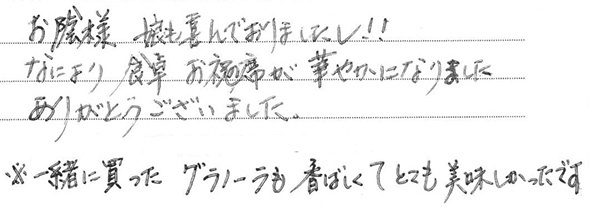 お陰様 娘も喜んでおりましたし!!
なにより 食卓 お祝の席が 華やかになりました
ありがとうございました。
※一緒に買った グラノーラも 香ばしくて とても 美味しかったです